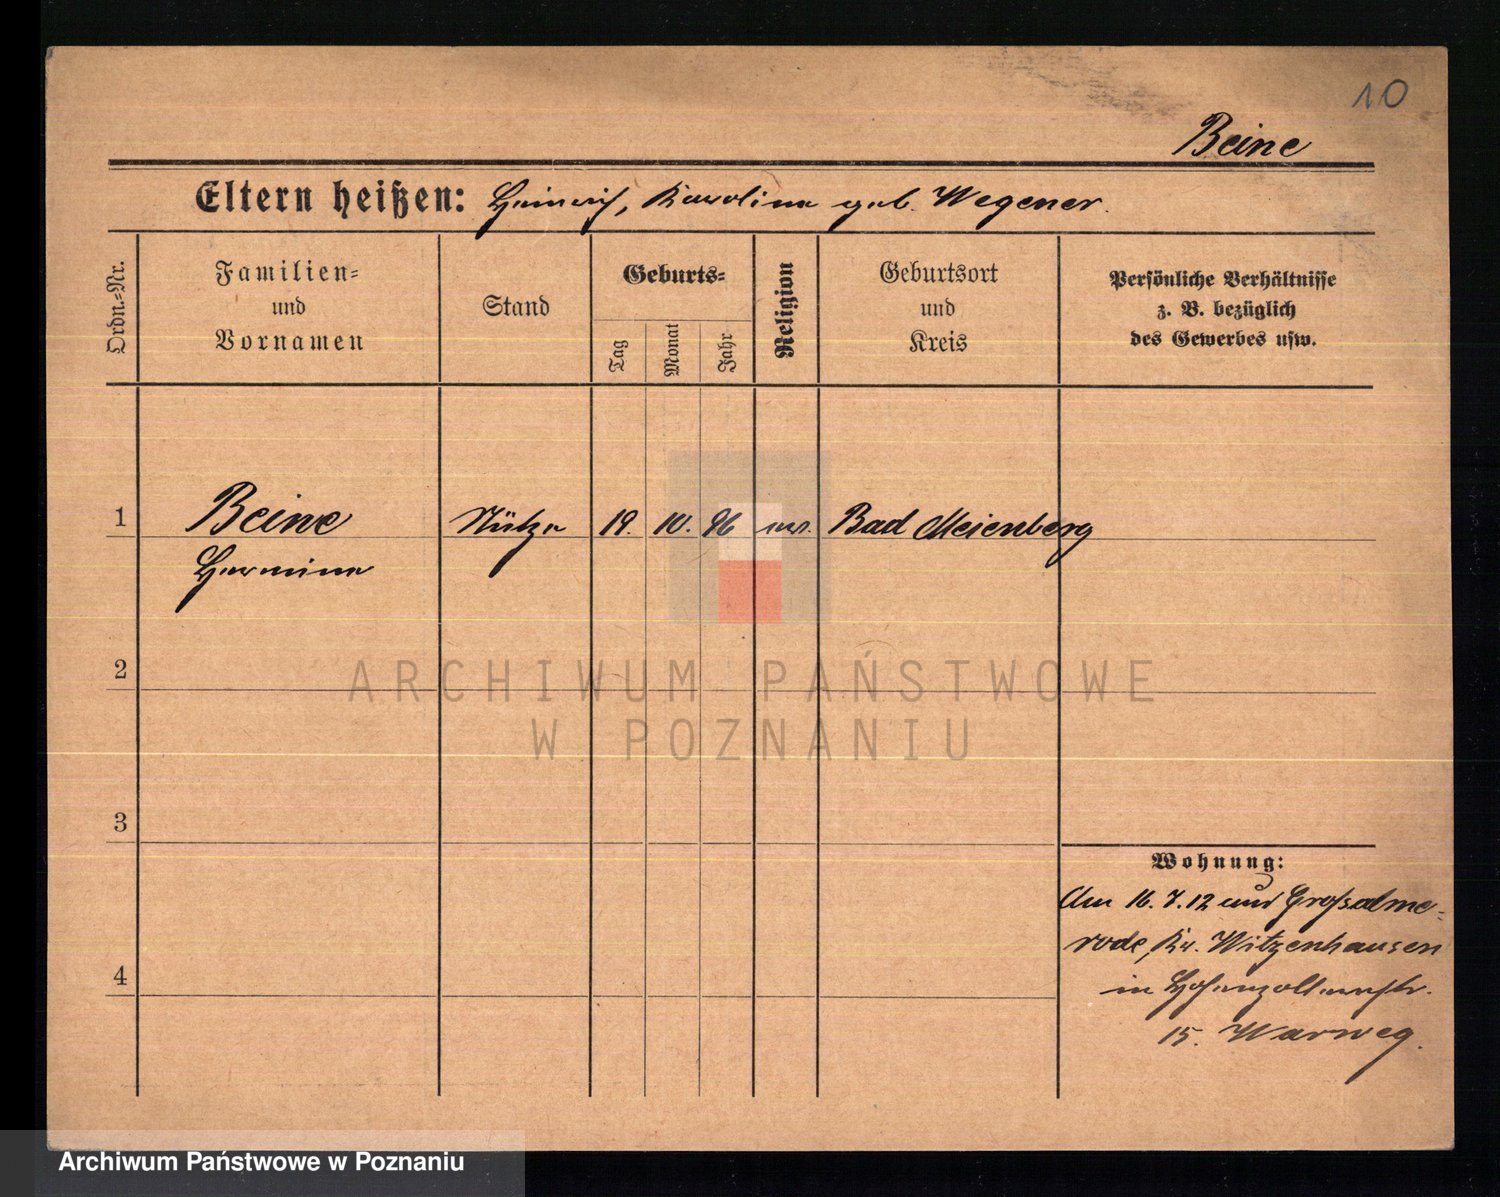 10
Beine
Eltern heißen: Heinrich, Karoline geb. Wegener.
Ordn.-Nr.
Familien-
und
Vornamen
Stand
Geburts-
Tag
Monat
Jahr
Religion
Geburtsort
und
Kreis
Persönliche Verhältnisse
z. B. bezüglich
des Gewerbes usw.
1 Beine Stütze 19. 10. 96 ev. Bad Meienberg
Hermine
2
ARCHIWUM PAŃSTWOWE
W POZNANIU
3
Wohnung:
Am 16.7.12 aus Großalme-
rode, Kr. Witzenhausen
in Hohenzollernstr.
15. Warweg.
4
Archiwum Państwowe w Poznaniu